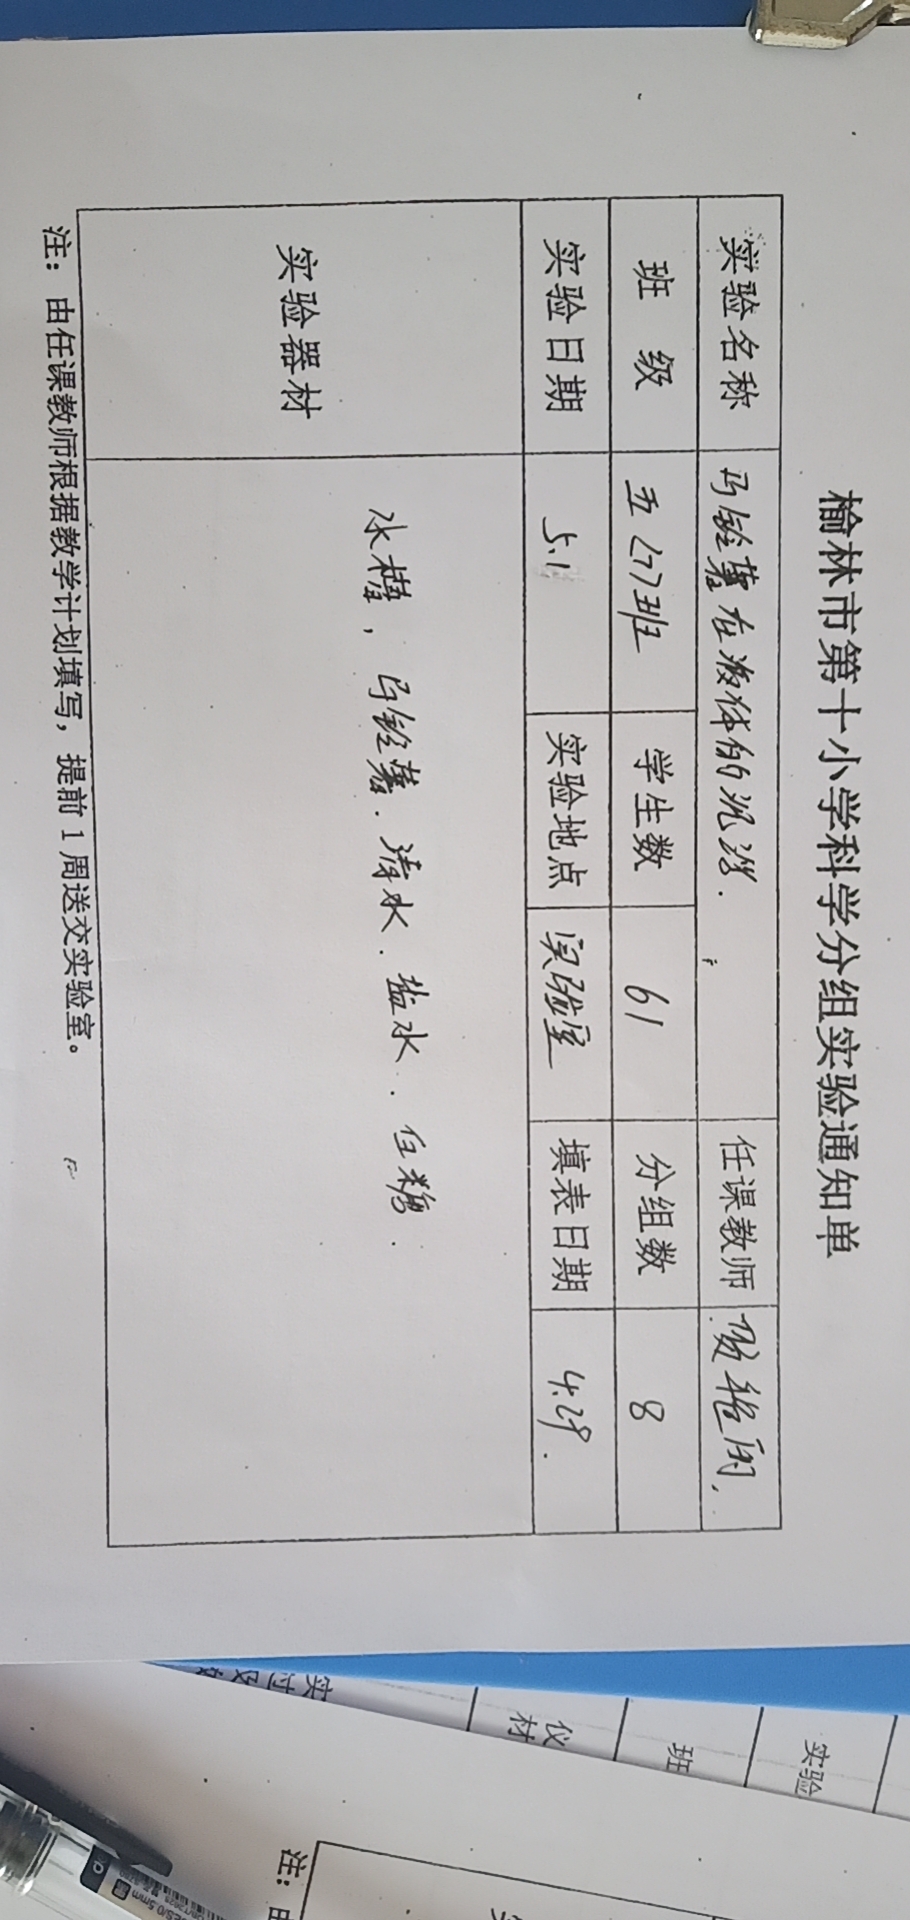 榆林市第十小学科学分组实验通知单
实验名称 马铃薯在液体的沉浮. 任课教师
班 级 五〈7〉班 学生数 61 分组数 8
实验日期 5.1 实验地点 实验室 填表日期 4.29.
实验器材 水槽, 马铃薯. 清水. 盐水. 白糖.
注：由任课教师根据教学计划填写，提前1周送交实验室。
实验
班
仪
材
注：由
0.5mm